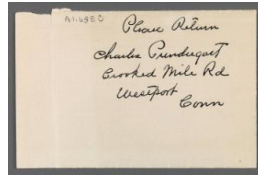 A1.688C
Please Return
Charles Prendergast
Crooked Mile Rd
Westport
Conn